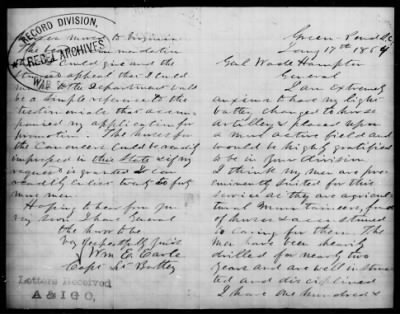 Green Pond SC
Jany 17th 1864
Gnl Wade Hampton
General
I am Extremely
anxious to have my light
battery changed to horse
artillery & placed upon
a more active field and
would be highly gratified
to be in your division
I think my men are pre-
eminently suited for this
service as they are agricul-
tural Mountaineers, fond
of horses & accustomed
to caring for them. The
men have been
drilled for nearly two
years and are well instruc-
ted and disciplined
I have one hundred &
men to Virginia
The
could give and the
appeal that I could
make to the Department would
be a simple reference to the
testimonials that accom-
panied my application for
promotion. The horses for
the Cannoneers could be readily
in this State & if my
request is granted I can
readily enlist twenty to forty
more men.
Hoping to hear from you
very soon, I have General
the honor to be
Very respectfully yours
Wm E. Earle
Capt Lt Battery
RECORD DIVISION,
REBEL ARCHIVES
WAR
Letters Received
A & I G O,